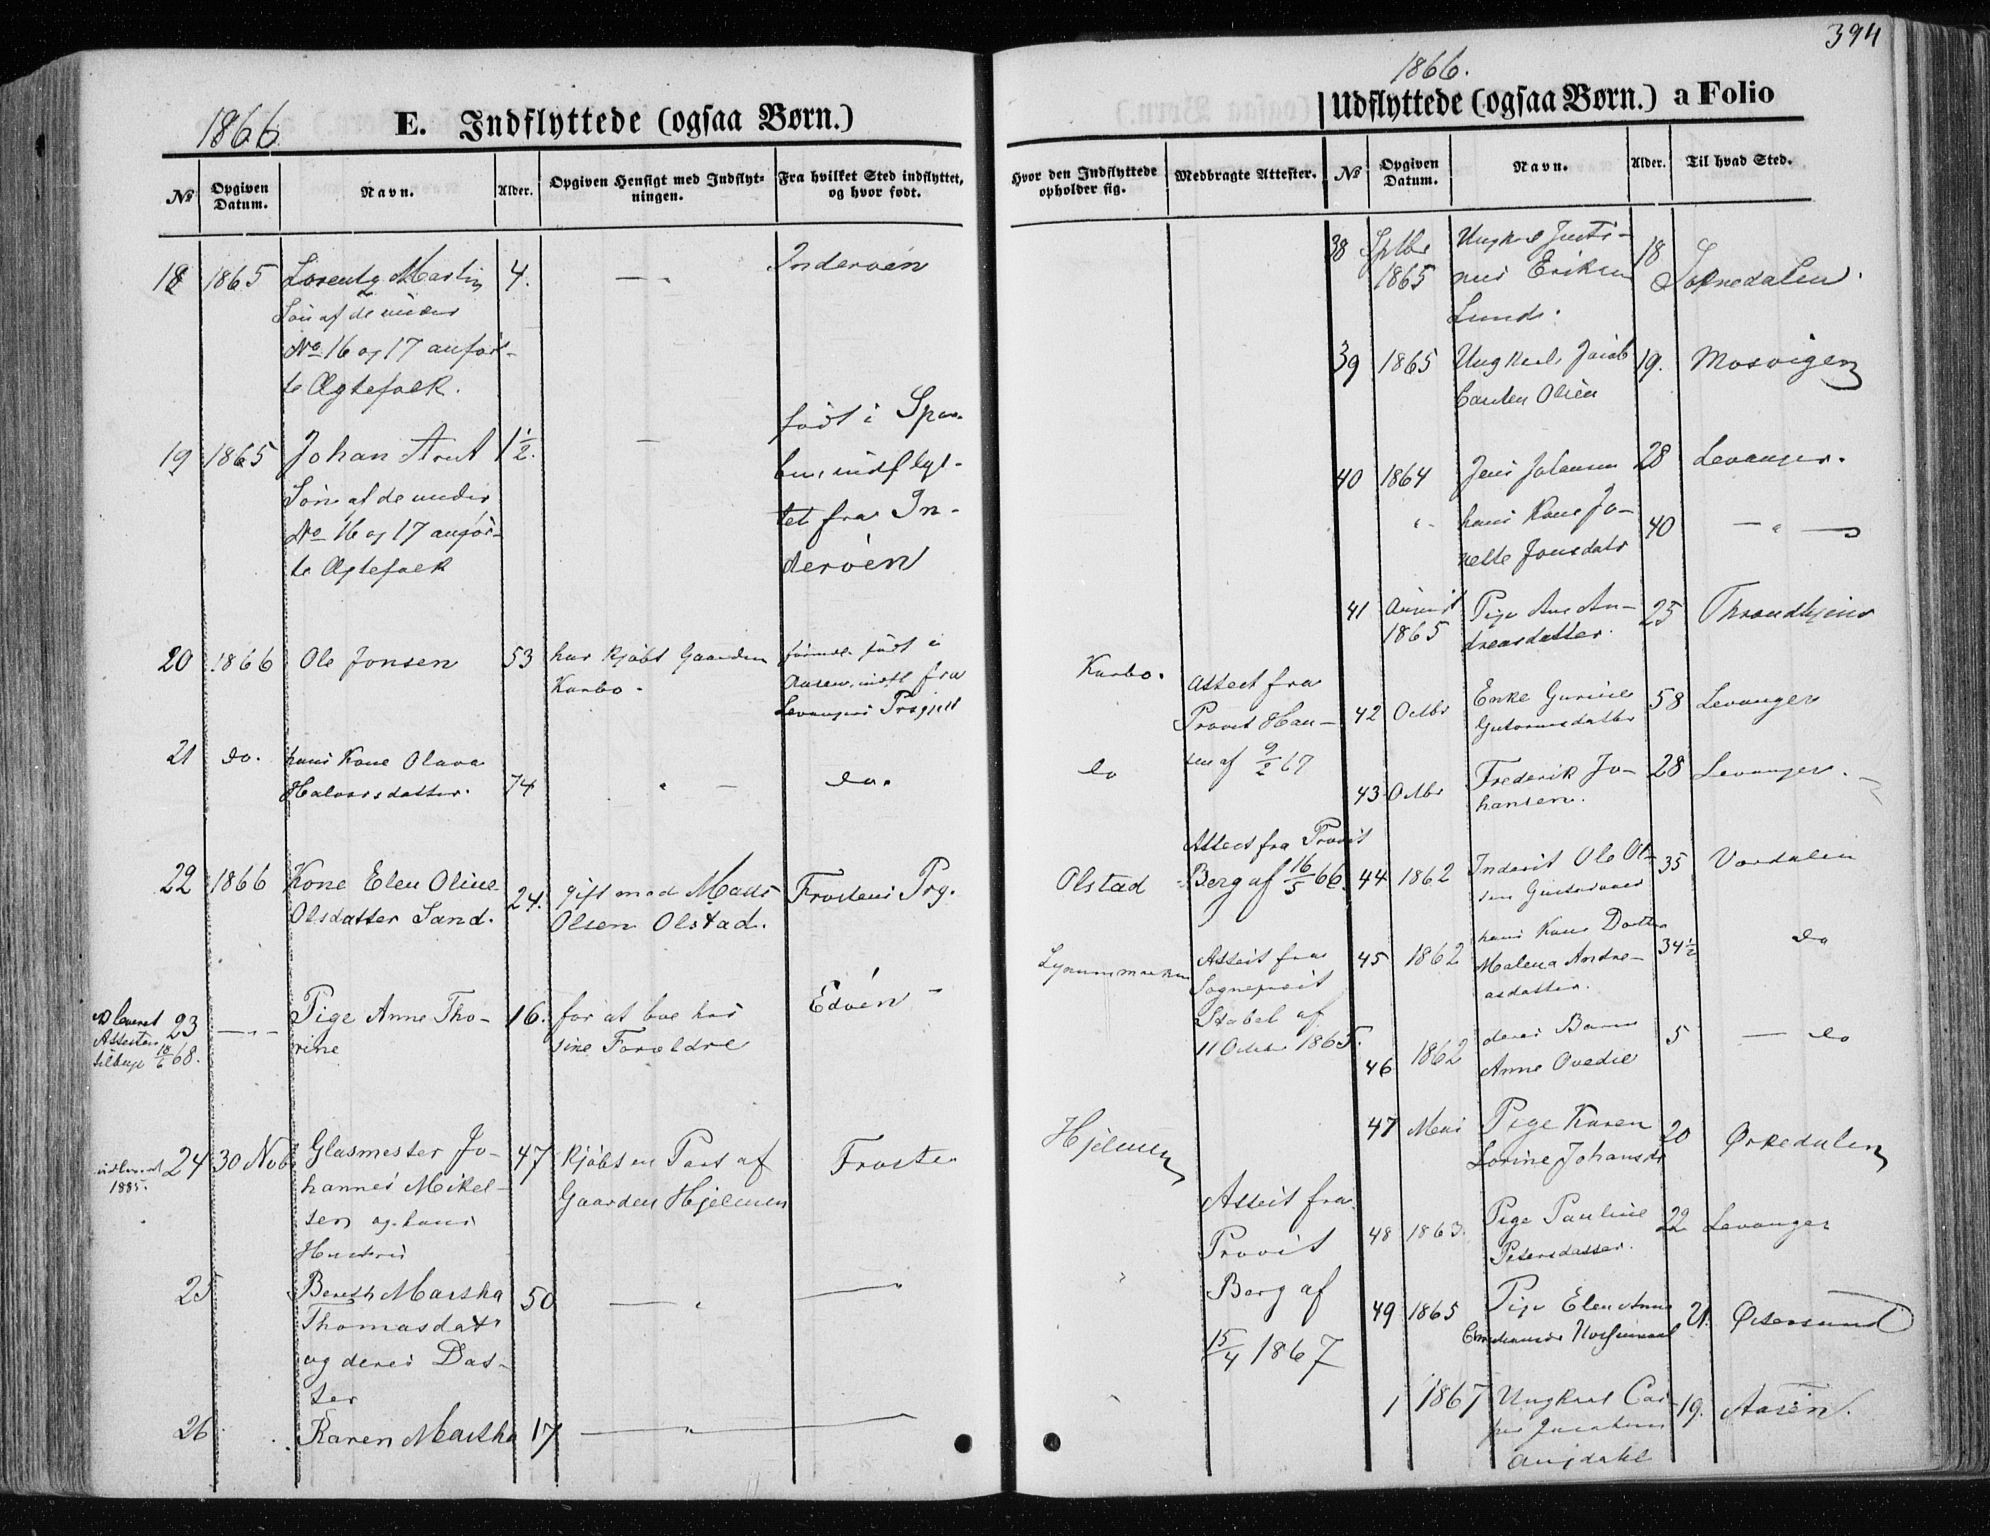 394
1866
E. Indflyttede (ogsaa Børn.)
№
Opgiven Datum.
Navn.
Alder.
Opgiven Hensigt med Indflyt-
ningen.
Fra hvilket Sted indflyttet,
og hvor født.
18 1865 Lorentz Martin 4. Inderöen
Søn af de under
No 16 og 17 anför-
te Ægtefolk.
19 1865 Johan Arnt 1½. født i Spar-
Søn af de under bu, indflyt-
No 16 og 17 anför- tet fra In-
te Ægtefolk deröen
20 1866 Ole Jonsen 53 har kjøbt Gaarden født i
Karbo. fra
Levangers Prgjeld
21 do. hans Kone Olava
Halvorsdatter. 74 " — do.
22 1866 Kone Elen Oline 24. gift med Mads Frostens Prg.
Olsdatter Sand. Olsen Olstad.
leveret
Attesten
tilbage 18/6 68.
23 — " — Pige Anne Tho- 16. for at boe hos Edöen
rine sine Forældre
1885.
24 30 Nob Glasmester Jo- 47 kjøbt en Part af Froste
hannes Mikel- Gaarden Hjelmen
sen og hans
Hustru
25 Bereth Martha 50 — " —
Thomasdatr
og deres Dat-
ter
26 Karen Martha 17 — " —
1866.
Udflyttede (ogsaa Børn.) a Folio
Hvor den Indflyttede
opholder sig.
Medbragte Attester.
№
Opgiven
Datum.
Navn.
Alder.
Til hvad Sted.
Karbo. Attest fra
Provst Han-
do sen af 9/2 67
Olstad Attest fra Provst
Berg af 16/5 66.
Attest fra
Sogneprest
Stabel af
11 Octbr 1865.
Hjelmen
Attest fra
Provst
Berg af
15/4 1867
38 Sptbr Ungkarl 18
1865 Eriksen
Lund.
39 1865 Ungkarl Jacob 19. Mosvigen
Olsen
40 1864 Jens Johansen 28 Levanger.
" hans Kone Jo- 40 — " —
nette Jonsdatr
41 August Pige Ane An- 25 Throndhjem
1865 dreasdatter.
42 Octbr Enke Gurine 58 Levanger
Guttormsdatter
43 Octbr Frederik Jo- 28 Levanger.
hansen.
44 1862 Inderst Ole Ol- 35 Værdalen
sen
45 1862 hans Kone 34½ do
Malena Andre-
asdatter.
46 1862 deres Barn 5 — do
Anne Ovedie
47 Mai Pige Karen 20 Ørkedalen
Lorine Johansdr
48 1863. Pige Pauline 22 Levanger
Petersdatter.
49 1865 Pige Elen Anna 21. Østersund
1 1867 Ungkarl 19. Aasen.